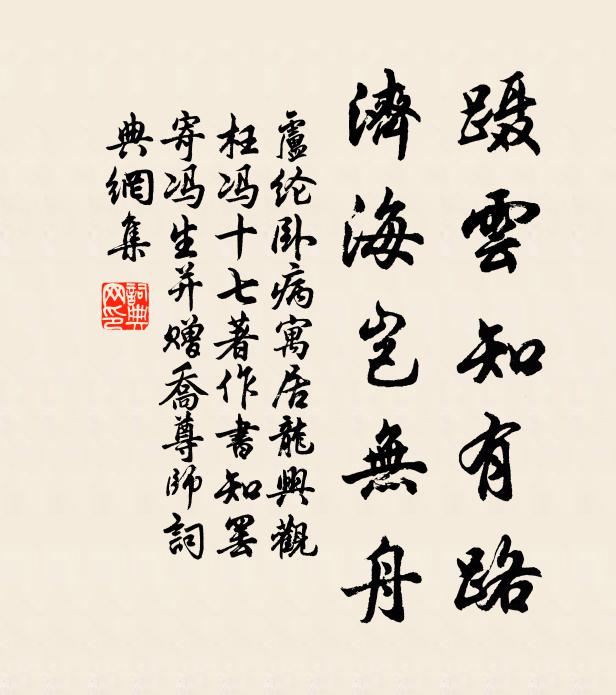 蹑雲知有路
濟海岂無舟
盧纶卧病寓居龍興觀
枉冯十七著作書知罢
寄冯生并赠喬尊師詞
典網集
詞典
网印